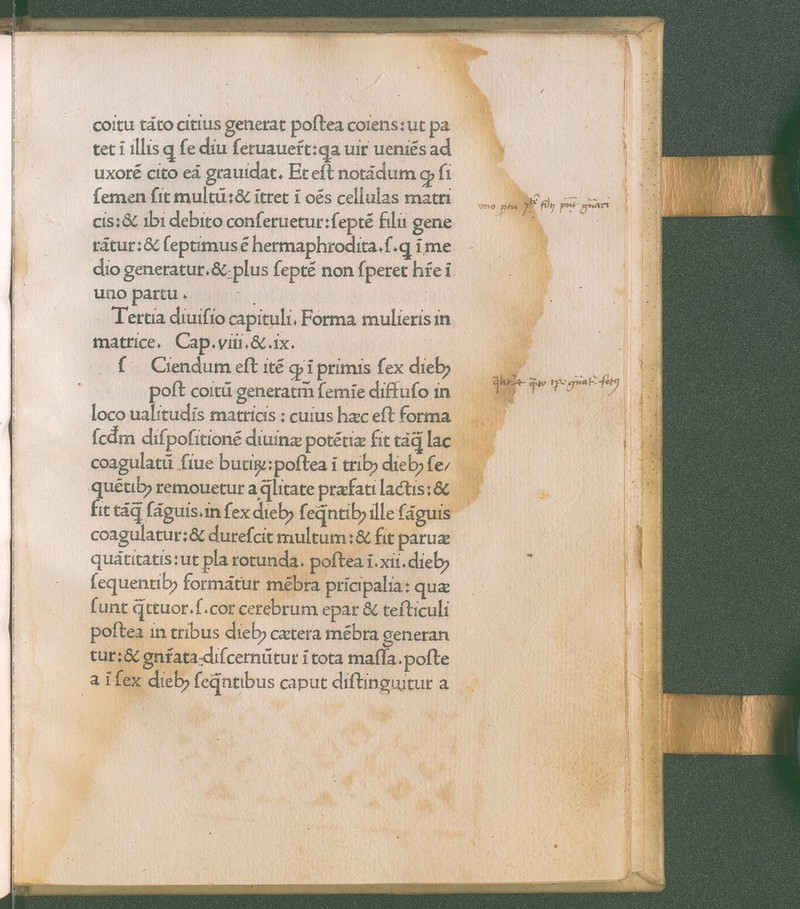 coitu tãto citius generat poſtea coiens:ut pa
tet ĩ illis q ſe diu ſeruauer̃t:qa uir ueniẽs ad
uxorẽ cito eã grauidat. Et eſt notãdum ꝙ ſi
ſemen ſit multũ:& ĩtret ĩ oẽs cellulas matri
cis:& ibi debito conſeruetur:ſeptẽ filii gene
rãtur:& ſeptimus ẽ hermaphrodita.ſ.q ĩ me
dio generatur.& plus ſeptẽ non ſperet hr̃e ĩ
uno partu.
Tertia diuiſio capituli. Forma mulieris in
matrice. Cap.viii.&.ix.
ſ Ciendum eſt itẽ ꝙ ĩ primis ſex diebꝫ
poſt coitũ generatiṁ ſemĩe diffuſo in
loco ualitudĩs matricis : cuius hæc eſt forma
ſcd̃m diſpoſitionẽ diuinæ potẽtiæ fit tãq̃ lac
coagulatũ ſiue butiꝝ:poſtea ĩ tribꝫ diebꝫ ſe/
quẽtibꝫ remouetur a q̃litate præfati lactis:&
fit tãq̃ ſãguis.in ſex diebꝫ ſeq̃ntibꝫ ille ſãguis
coagulatur:& dureſcit multum:& fit paruæ
quãtitatis:ut pla rotunda. poſtea ĩ.xii.diebꝫ
ſequentibꝫ formãtur mẽbra prĩcipalia: quæ
ſunt q̃ttuor.ſ.cor cerebrum epar & teſticuli
poſtea in tribus diebꝫ cætera mẽbra generan
tur:& gnr̃ata diſcernũtur ĩ tota maſſa.poſte
a ĩ ſex diebꝫ ſeq̃ntibus caput diſtinguitur a